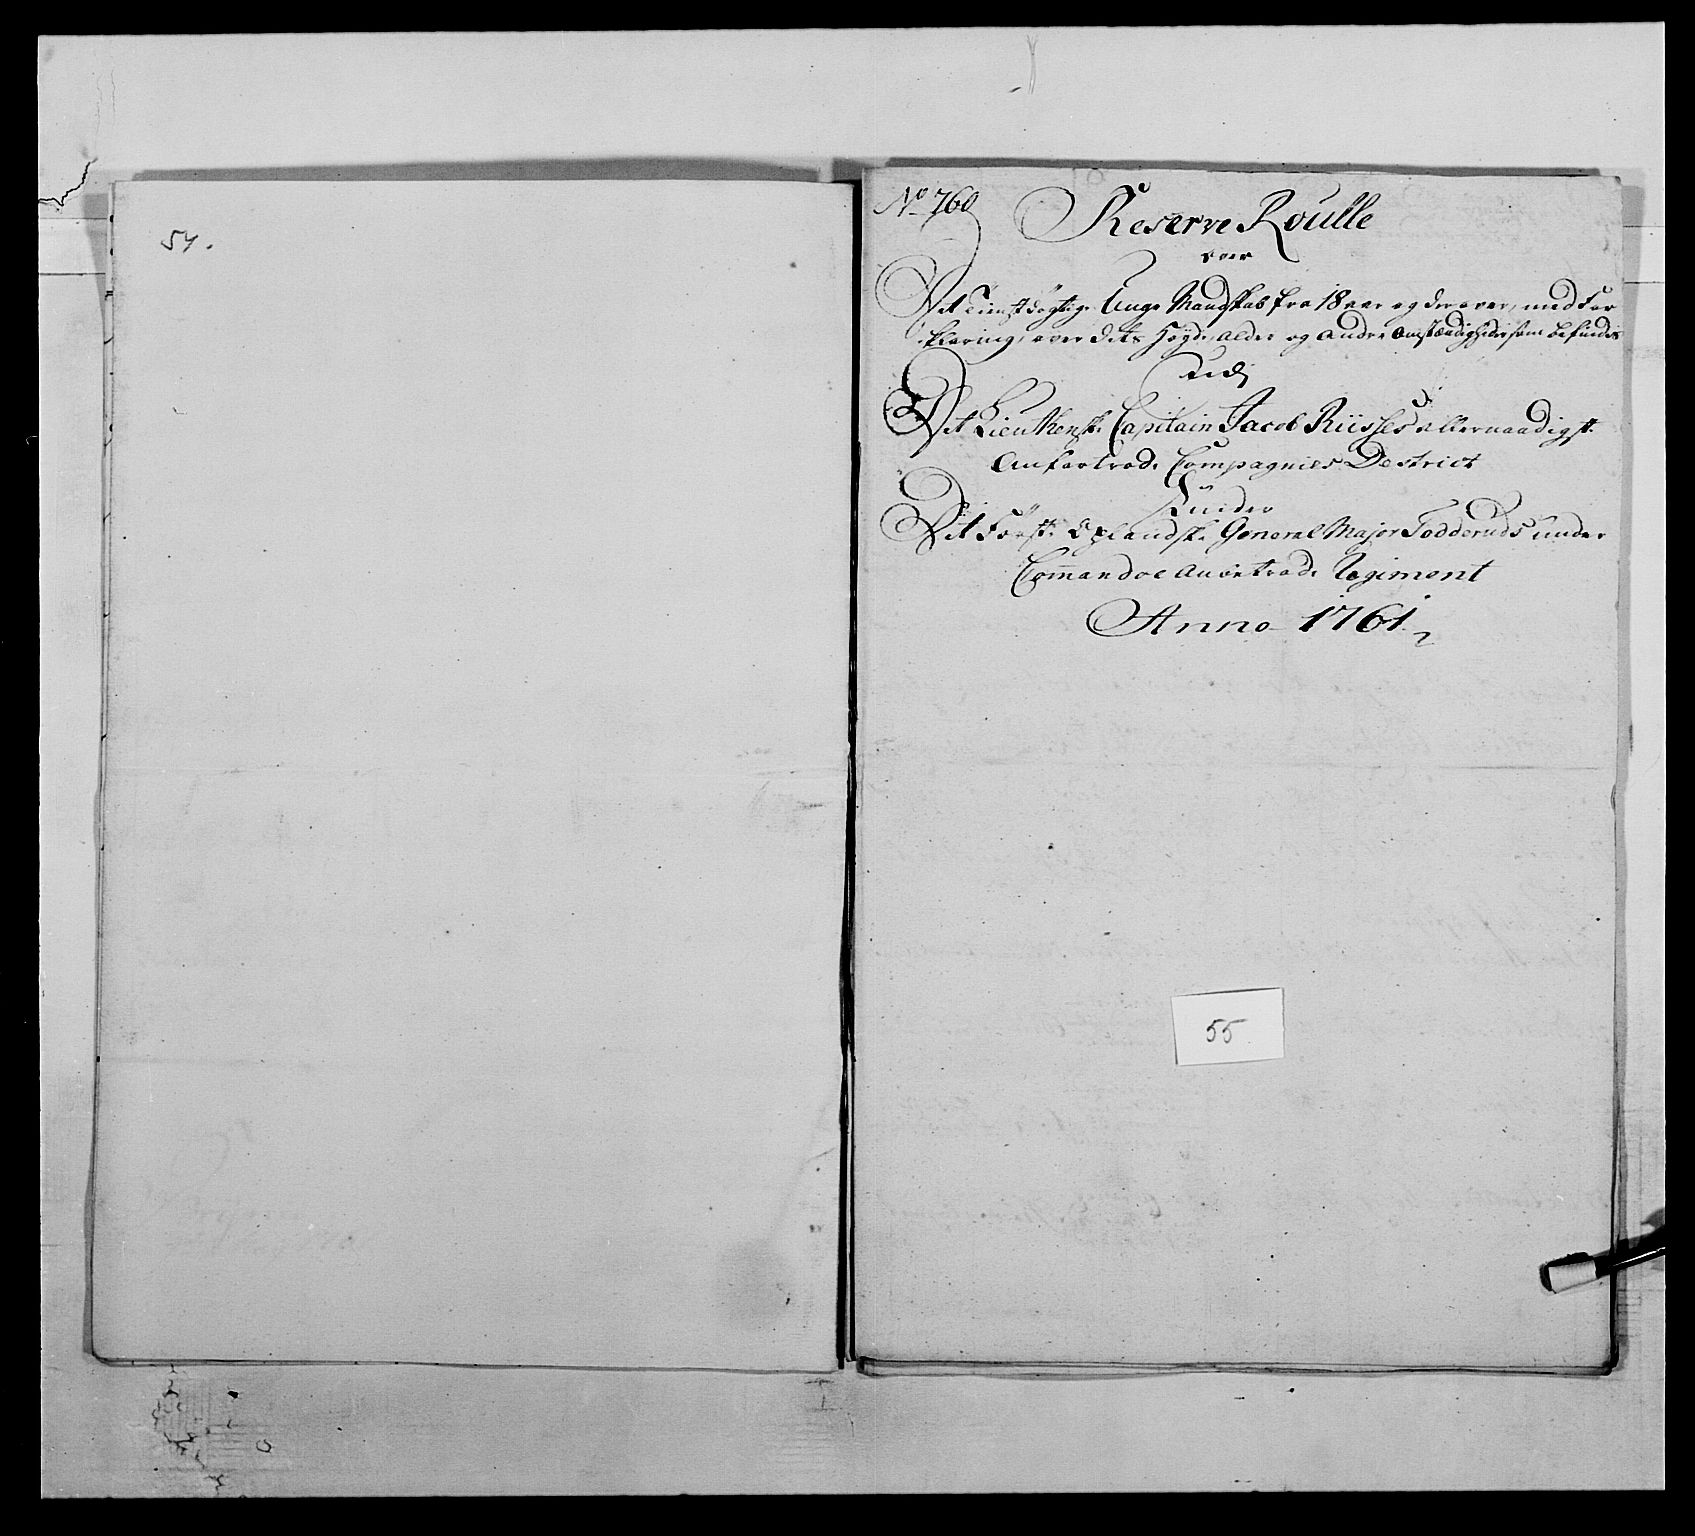 54.
No 760
Reserve Roulle
over
Det Tienstdygtige Unge Mandskab fra 18 aar og derover, med For
klaring over dets Høyde, alder og andre omstændigheder som befindes
udj
Det Lieuthenske Capitain Jacob Riisses allernaadigst
Anfortrode Compagnies District
Under
Det Første Oplandske General Major Todderuds under
Commandoe anbetrode Regiment
Anno 1761
55.